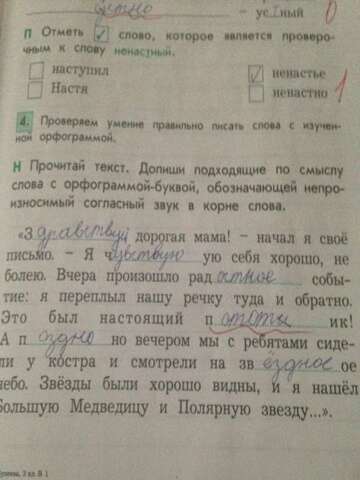 устно – ус т ный 0
П Отметь ✓ слово, которое является провероч-
ным к слову ненастный.
наступил ✓ ненастье
Настя ненастно 1
4. Проверяем умение правильно писать слова с изучен-
ной орфограммой.
Н Прочитай текст. Допиши подходящие по смыслу
слова с орфограммой-буквой, обозначающей непро-
износимый согласный звук в корне слова.
«Здравствуй, дорогая мама! – начал я своё
письмо. – Я чувствую ую себя хорошо, не
болею. Вчера произошло рад остное собы-
тие: я переплыл нашу речку туда и обратно.
Это был настоящий п ик!
А п оздно но вечером мы с ребятами сиде-
ли у костра и смотрели на зв ёздное ое
небо. Звёзды были хорошо видны, и я нашёл
Большую Медведицу и Полярную звезду...».
2 кл. В 1